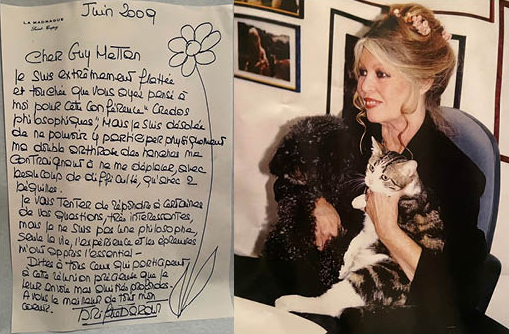 Juin 2009
LA MADRAGUE
Saint-Tropez
Cher Guy Mettan
Je suis extrêmement flattée
et touchée que vous ayez pensé à
moi pour cette conférence "Credos
philosophiques" mais je suis désolée
de ne pouvoir y participer physiquement
ma double arthrose des hanches me
contraignant à ne me déplacer, avec
beaucoup de difficulté, qu'avec 2
béquilles.
Je vais tenter de répondre à certaines
de vos questions, très intéressantes,
mais je ne suis pas une philosophe,
seule la vie, l'expérience et les épreuves
m'ont appris l'essentiel -
Dites à tous ceux qui participent
à cette réunion précieuse que je
leur envoie mes amitiés profondes.
A vous le meilleur de tout mon
coeur.
Brigitte Bardot